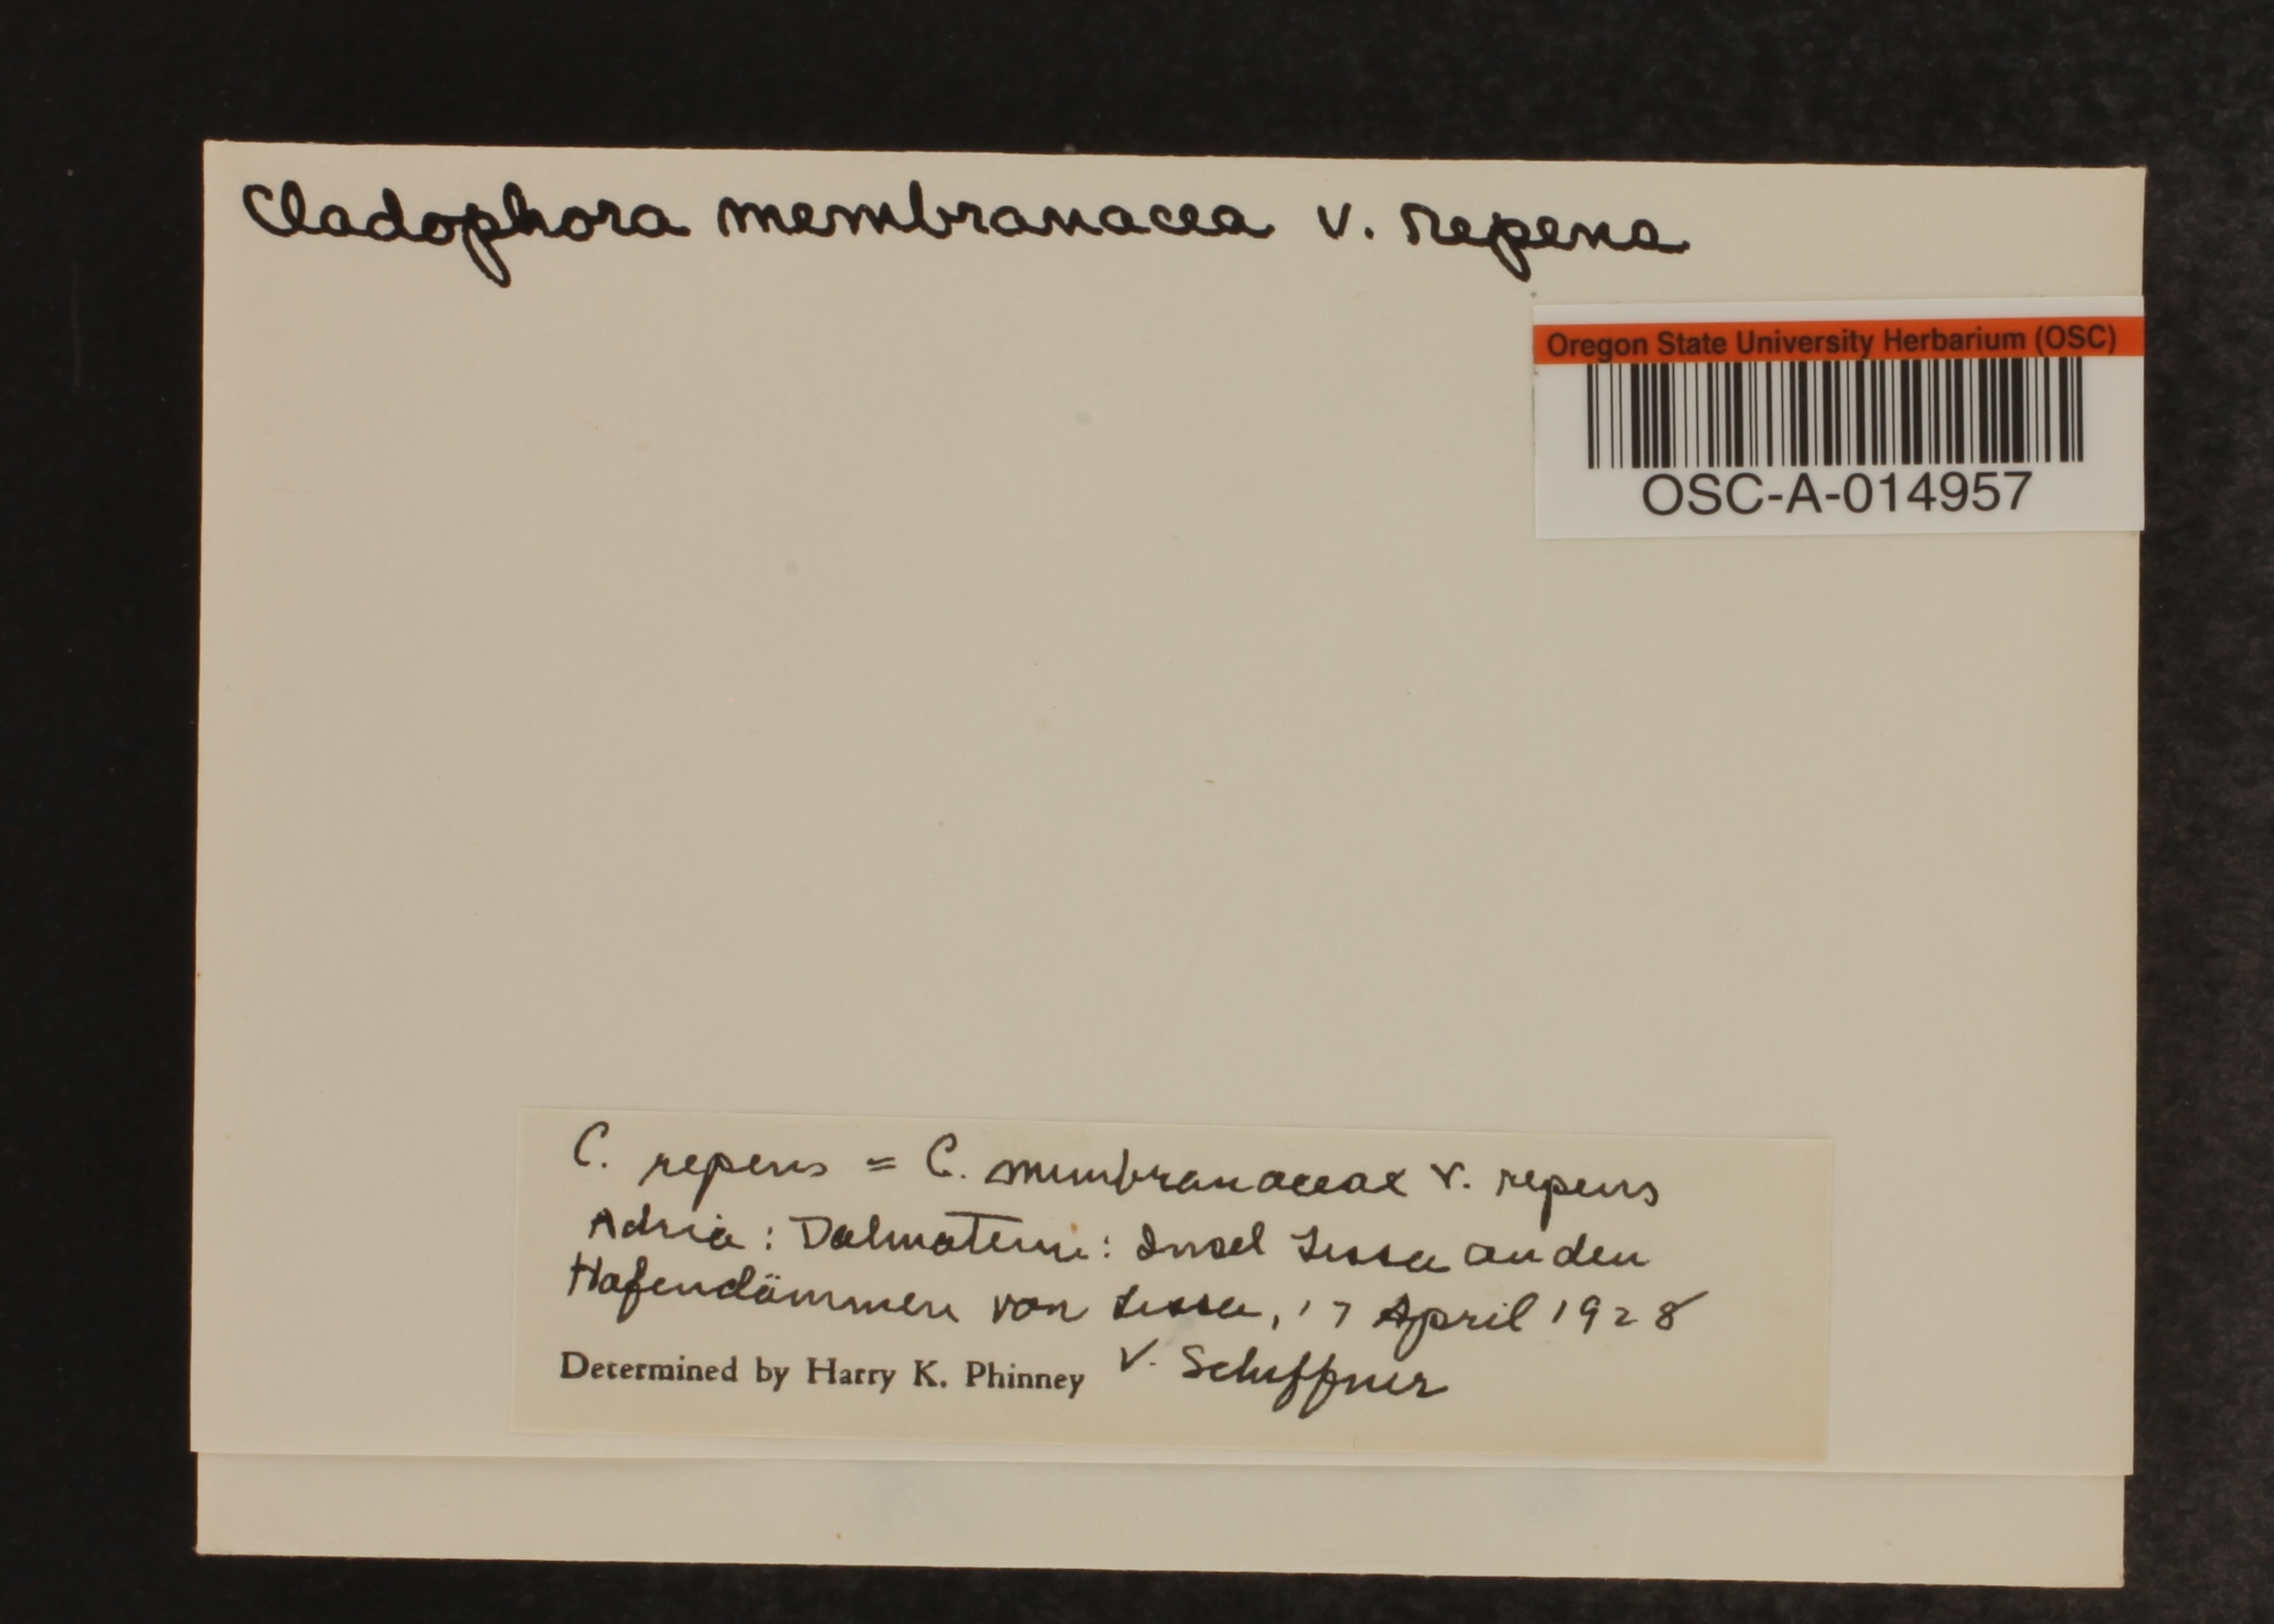 Cladophora membranacea v. repens
Oregon State University Herbarium (OSC)
OSC-A-014957
C. repens = C. membranaceae v. repens
Adria: Dalmatien: Insel Lissa an den
Hafendämmen von Lissa, 17 April 1928
Determined by Harry K. Phinney V. Schiffner